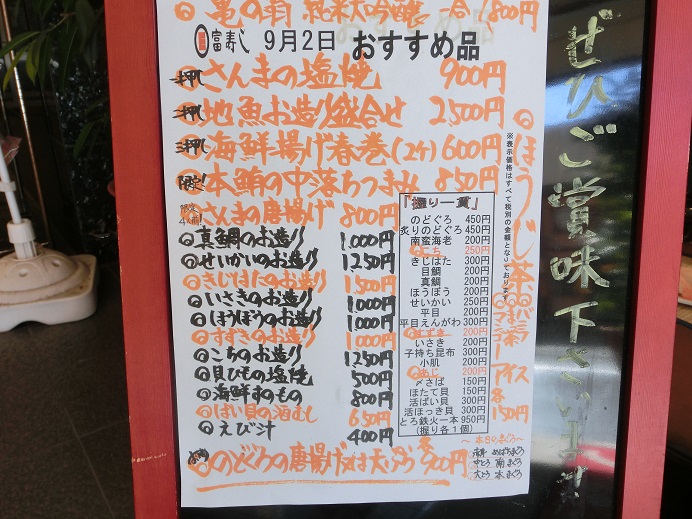 亀の翁 純米大吟醸 一合 1,800円
富寿し 9月2日 おすすめ品
押 さんまの塩焼 900円
押 地魚お造り盛合せ 2,500円
押 海鮮揚げ春巻(2ケ) 600円
限定! 本鮪の中落ちつまみ 850円
限定4人前! さんまの唐揚げ 800円
◎真鯛のお造り 1,000円
◎せいかいのお造り 1,250円
◎きじはたのお造り 1,500円
◎いさきのお造り 1,000円
◎ほうぼうのお造り 1,000円
◎すずきのお造り 1,000円
◎こちのお造り 1,250円
◎貝ひもの塩焼 500円
◎海鮮すのもの 800円
◎ばい貝の酒むし 650円
◎えび汁 400円
◎のどぐろの唐揚げ又は天ぷら 各900円
『握り一貫』
のどぐろ 450円
炙りのどぐろ 450円
南蛮海老 200円
◎こち 250円
きじはた 300円
目鯛 200円
真鯛 200円
ほうぼう 200円
せいかい 250円
平目 200円
平目えんがわ 300円
200円
いさき 200円
子持ち昆布 300円
小肌 200円
◎あじ 200円
〆さば 150円
ほたて貝 150円
活ばい貝 300円
活ほっき貝 300円
とろ鉄火一本 950円
(握り各1個)
※表示価格はすべて税別の金額となっております。
◎ほうじ茶
◎抹茶
◎マンゴー
アイス
各150円
~本日のまぐろ~
赤身 めばちまぐろ
中とろ 南まぐろ
大とろ 本まぐろ
ぜひご賞味下さいませ